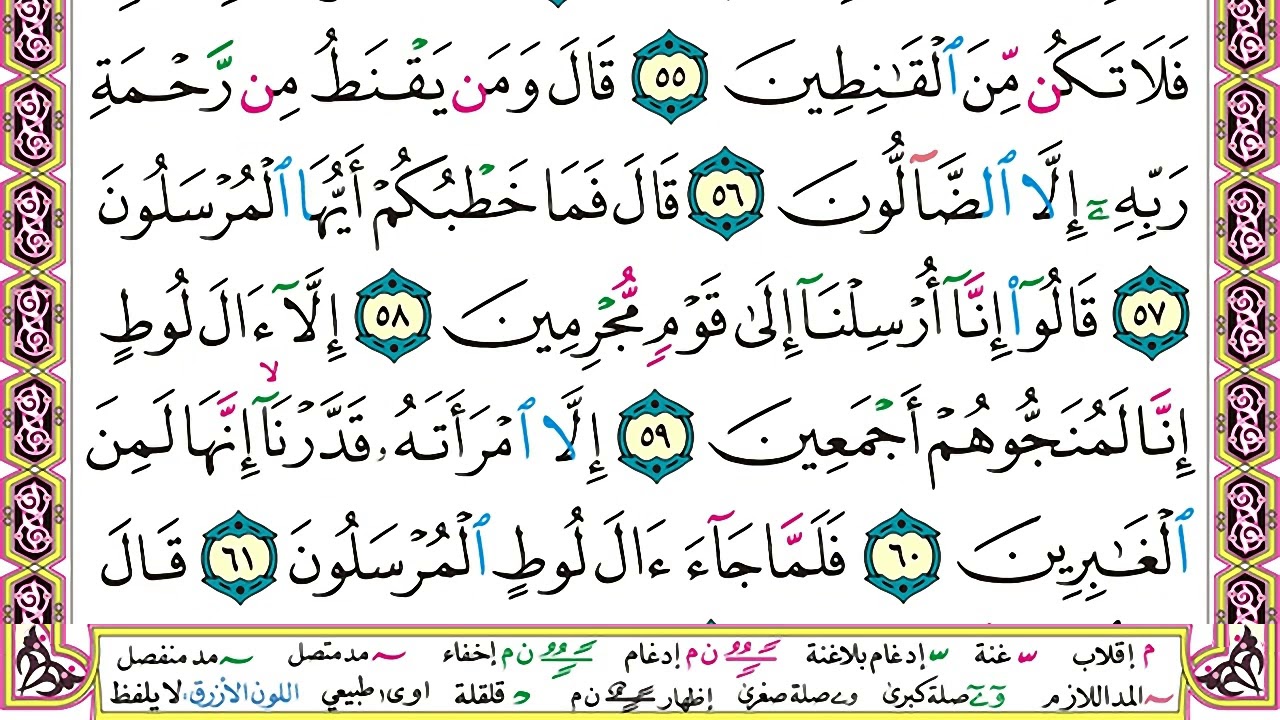 فَلَا تَكُن مِّنَ ٱلْقَـٰنِطِينَ ٥٥ قَالَ وَمَن يَقْنَطُ مِن رَّحْمَةِ
رَبِّهِۦٓ إِلَّا ٱلضَّآلُّونَ ٥٦ قَالَ فَمَا خَطْبُكُمْ أَيُّهَا ٱلْمُرْسَلُونَ
٥٧ قَالُوٓا۟ إِنَّآ أُرْسِلْنَآ إِلَىٰ قَوْمٍ مُّجْرِمِينَ ٥٨ إِلَّآ ءَالَ لُوطٍ
إِنَّا لَمُنَجُّوهُمْ أَجْمَعِينَ ٥٩ إِلَّا ٱمْرَأَتَهُۥ قَدَّرْنَآ ۙ إِنَّهَا لَمِنَ
ٱلْغَـٰبِرِينَ ٦٠ فَلَمَّا جَآءَ ءَالَ لُوطٍ ٱلْمُرْسَلُونَ ٦١ قَالَ
م إقلاب غنة إدغام بلاغنة ن م إدغام ن م إخفاء مد متصل مد منفصل
المد اللازم صلة كبرى و ے صلة صغرى إظهار ن م قلقلة اوى طبيعي اللون الأزرق: لا يلفظ